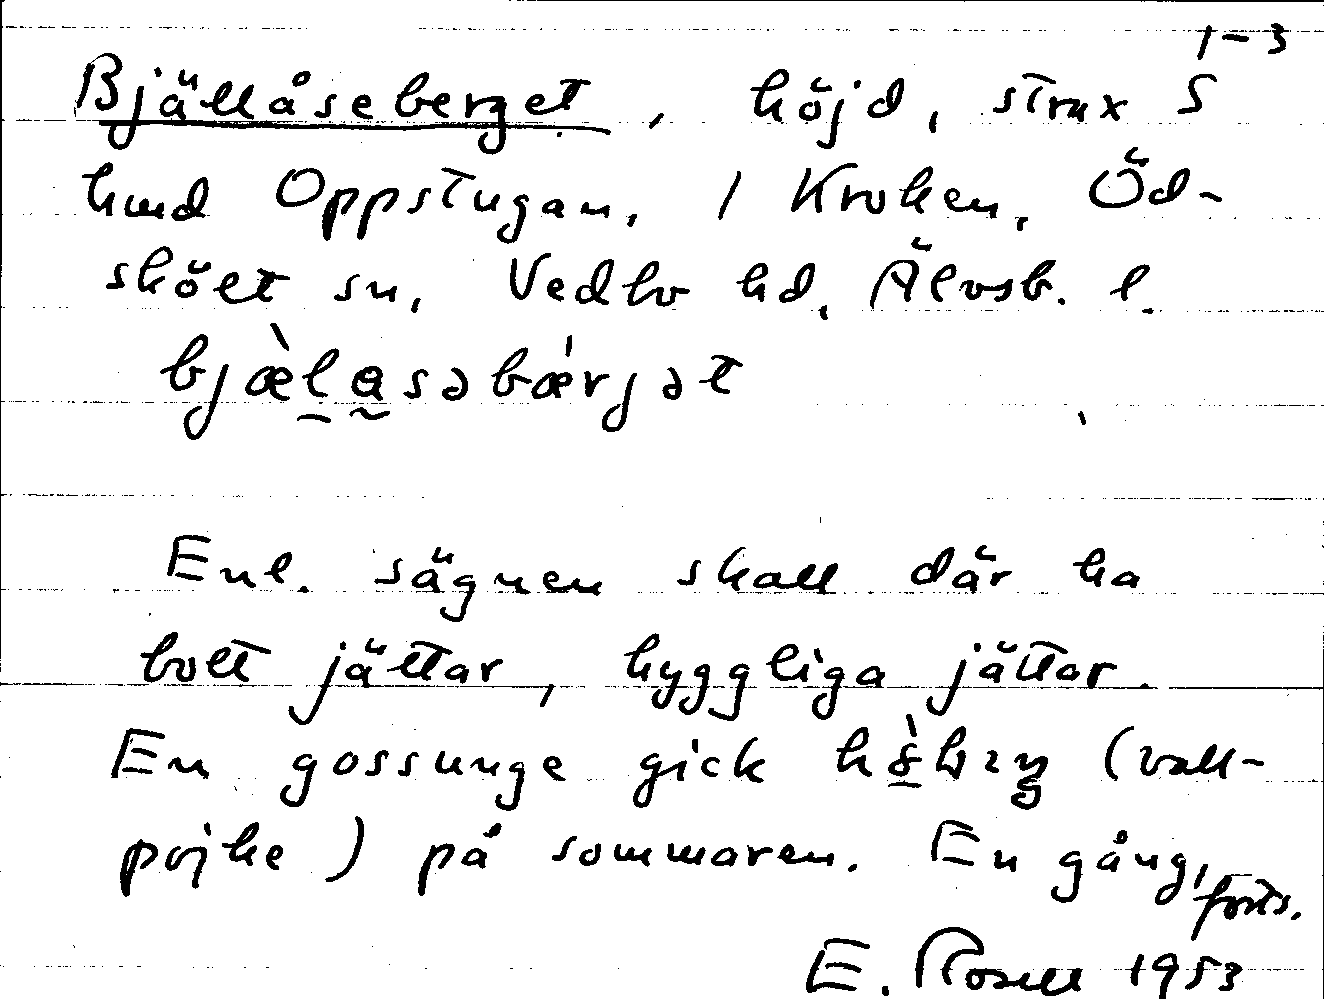 1-3
Bjällåseberget, höjd, strax S
hmd Oppstugan, 1 Kroken, Öd-
skölt sn, Vedbo hd, Älvsb. l.
bjæ̀l̠a̰səbǽrjət
Enl. sägnen skall där ha
bott jättar, hyggliga jättar.
En gossunge gick (vall-
pojke) på sommaren. En gång,
forts.
E. Rosell 1953